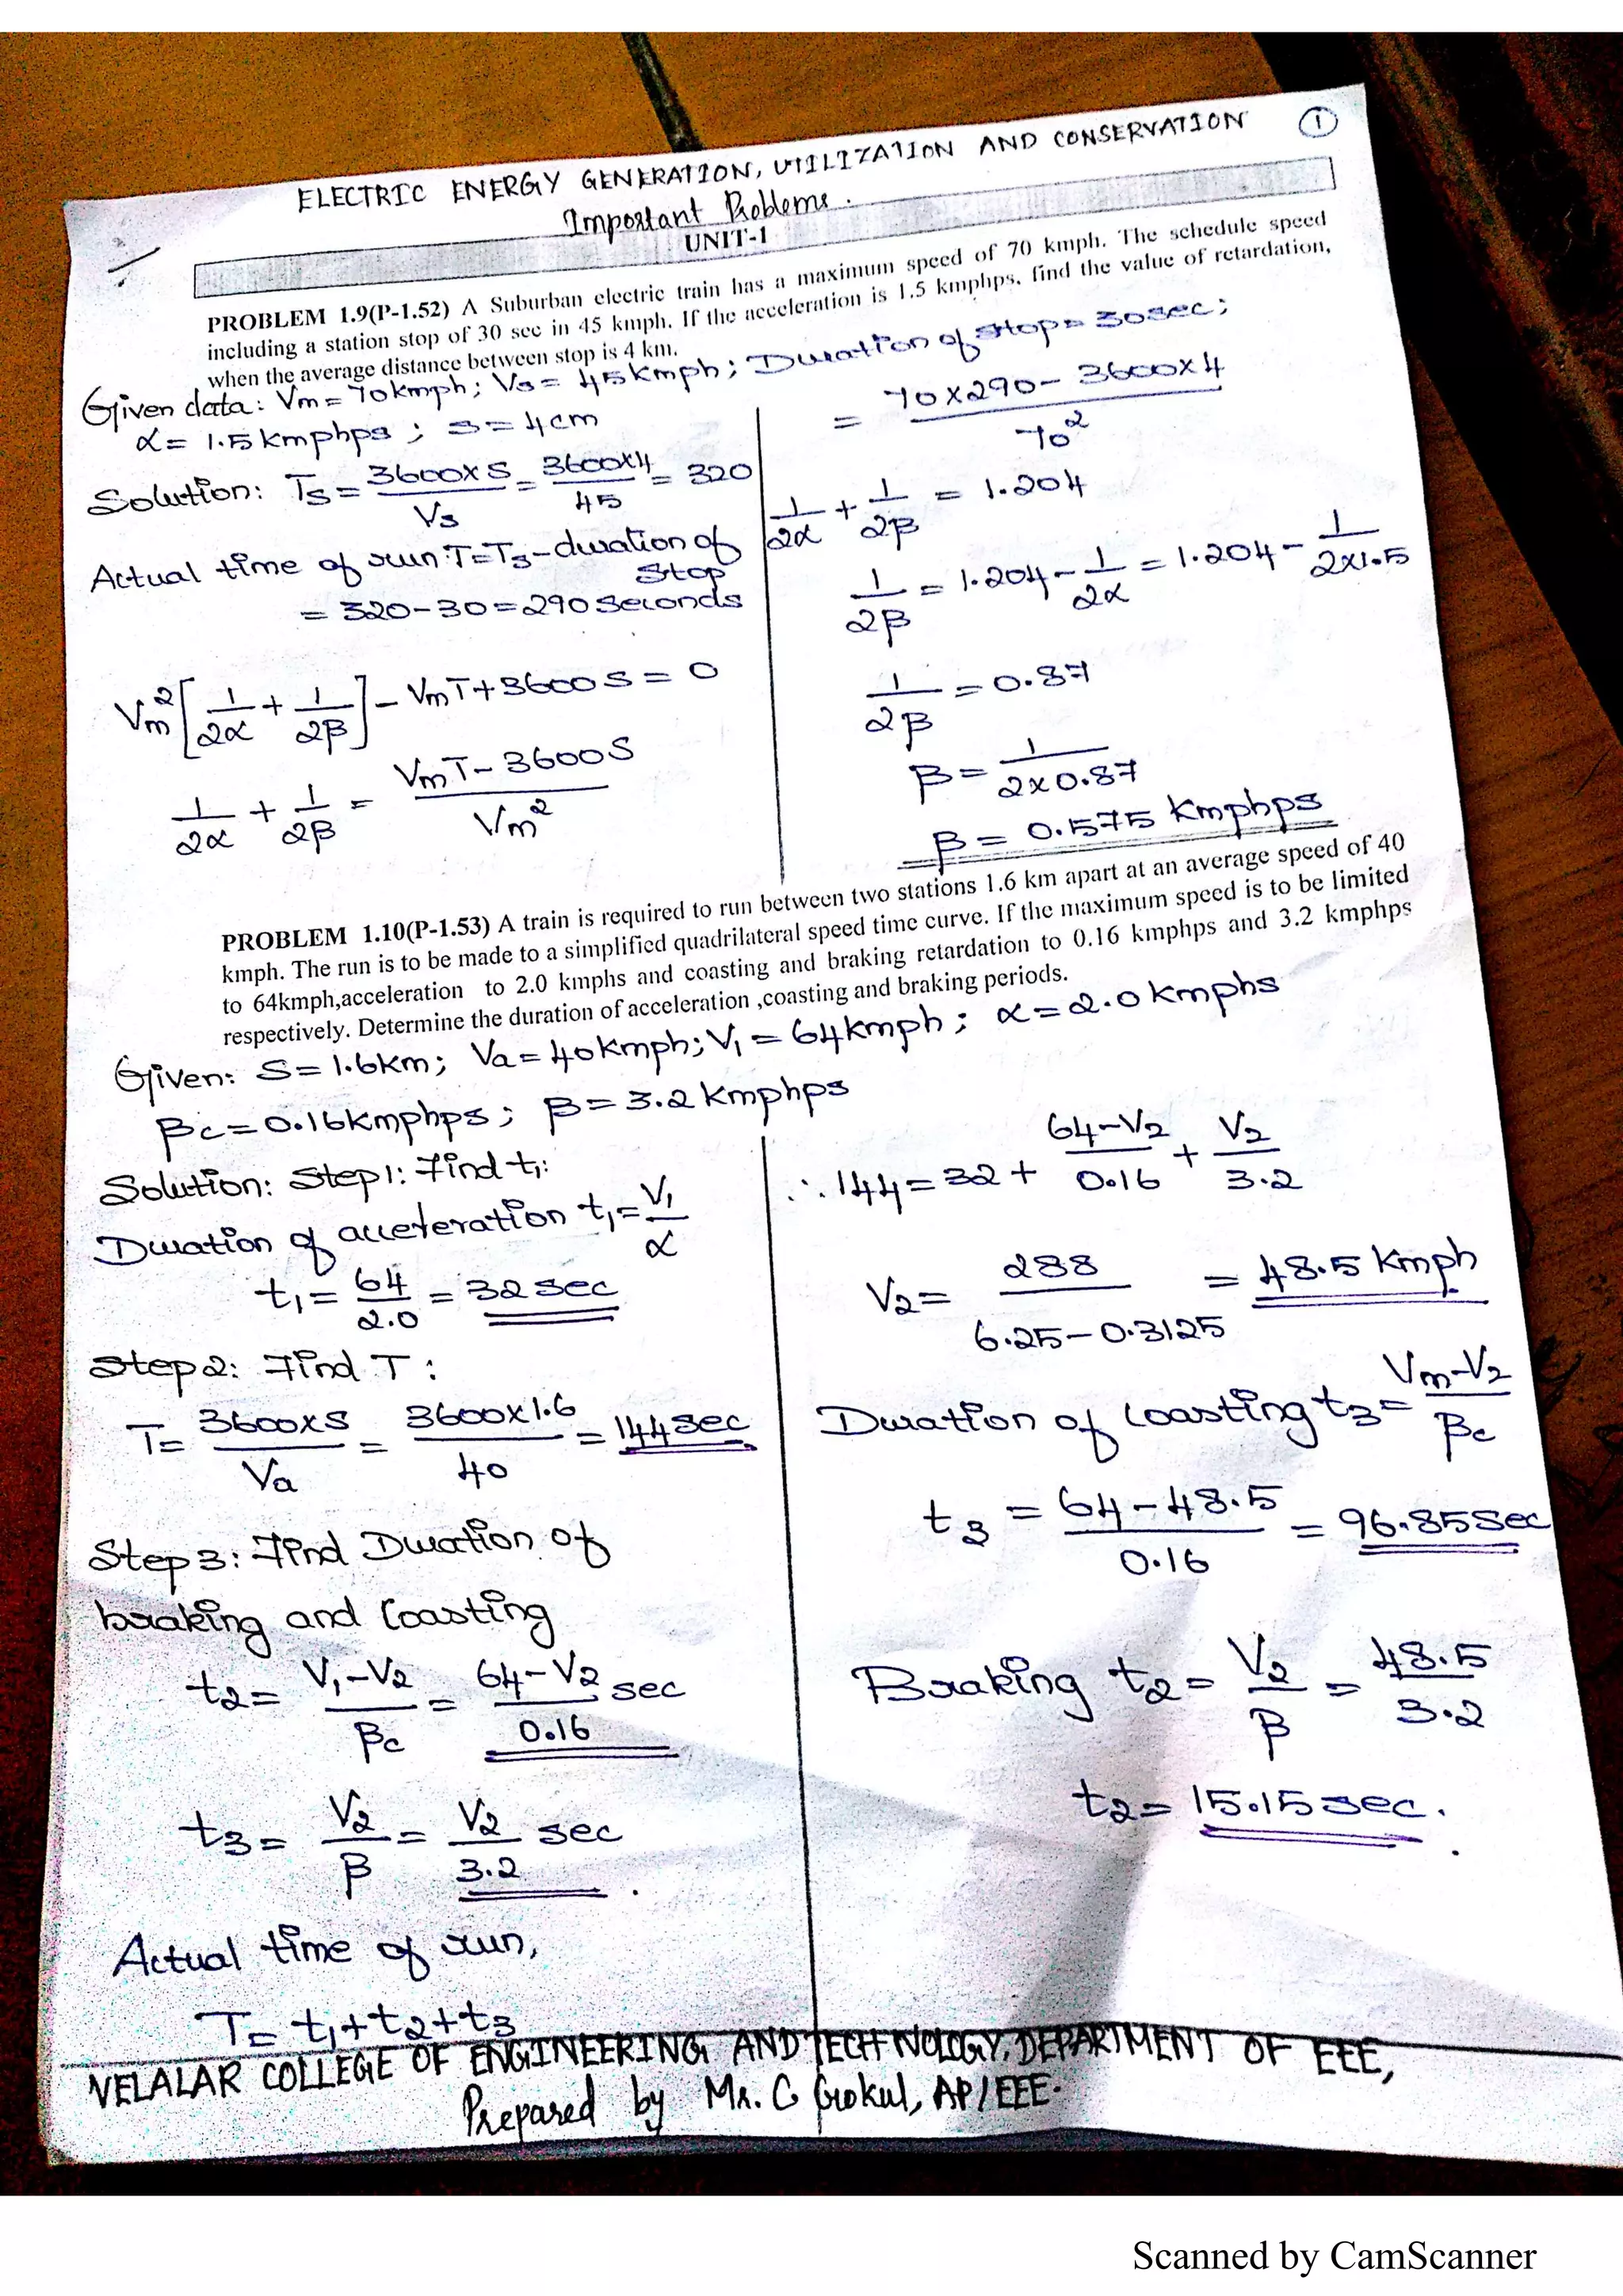 ELECTRIC ENERGY GENERATION, UTILIZATION AND CONSERVATION ①
Important Problems.
UNIT-1
PROBLEM 1.9(P-1.52) A Suburban electric train has a maximum speed of 70 kmph. The schedule speed
including a station stop of 30 sec in 45 kmph. If the acceleration is 1.5 kmphps, find the value of retardation,
when the average distance between stop is 4 km.
Given data: Vm = 70kmph; Vs = 45kmph; Duration of stop = 30sec;
α = 1.5 kmphps ; S = 4cm
Solution: Ts = 3600×S / Vs = 3600×4 / 45 = 320
Actual time of run: T = Ts - duration of
stop
= 320-30 = 290 seconds
Vm² [1/2α + 1/2β] - VmT + 3600S = 0
1/2α + 1/2β = VmT - 3600S / Vm²
= 70×290 - 3600×4 / 70²
1/2α + 1/2β = 1.204
1/2β = 1.204 - 1/2α = 1.204 - 1/2×1.5
1/2β = 0.87
β = 1/2×0.87
β = 0.575 kmphps
PROBLEM 1.10(P-1.53) A train is required to run between two stations 1.6 km apart at an average speed of 40
kmph. The run is to be made to a simplified quadrilateral speed time curve. If the maximum speed is to be limited
to 64kmph,acceleration to 2.0 kmphs and coasting and braking retardation to 0.16 kmphps and 3.2 kmphps
respectively. Determine the duration of acceleration ,coasting and braking periods.
Given: S = 1.6km; Va = 40kmph; V1 = 64kmph; α = 2.0 kmphs
βc = 0.16kmphps; β = 3.2 kmphps
Solution: Step1: Find t1:
Duration of acceleration t1 = V1/α
t1 = 64/2.0 = 32 sec
Step2: Find T :
T = 3600×S / Va = 3600×1.6 / 40 = 144sec
Step3: Find Duration of
braking and Coasting
t2 = V1-V2 / βc = 64-V2 / 0.16 sec
t3 = V2/β = V2/3.2 sec.
Actual time of run,
T = t1+t2+t3
∴ 144 = 32 + 64-V2 / 0.16 + V2 / 3.2
V2 = 288 / 6.25-0.3125 = 48.5 kmph
Duration of Coasting t3 = Vm-V2 / βc
t3 = 64-48.5 / 0.16 = 96.85sec
Braking t2 = V2/β = 48.5/3.2
t2 = 15.15 sec.
VELALAR COLLEGE OF ENGINEERING AND TECHNOLOGY, DEPARTMENT OF EEE,
Prepared by Mr. G Gokul, AP/EEE.
Scanned by CamScanner